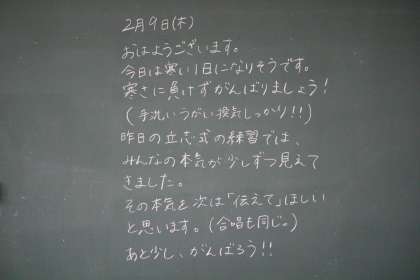 2月9日(木)
おはようございます。
今日は寒い1日になりそうです。
寒さに負けずがんばりましょう!
(手洗いうがい換気しっかり!!)
昨日の立志式の練習では、
みんなの本気が少しずつ見えて
きました。
その本気を次は「伝えて」ほしい
と思います。(合唱も同じ。)
あと少し、がんばろう!!